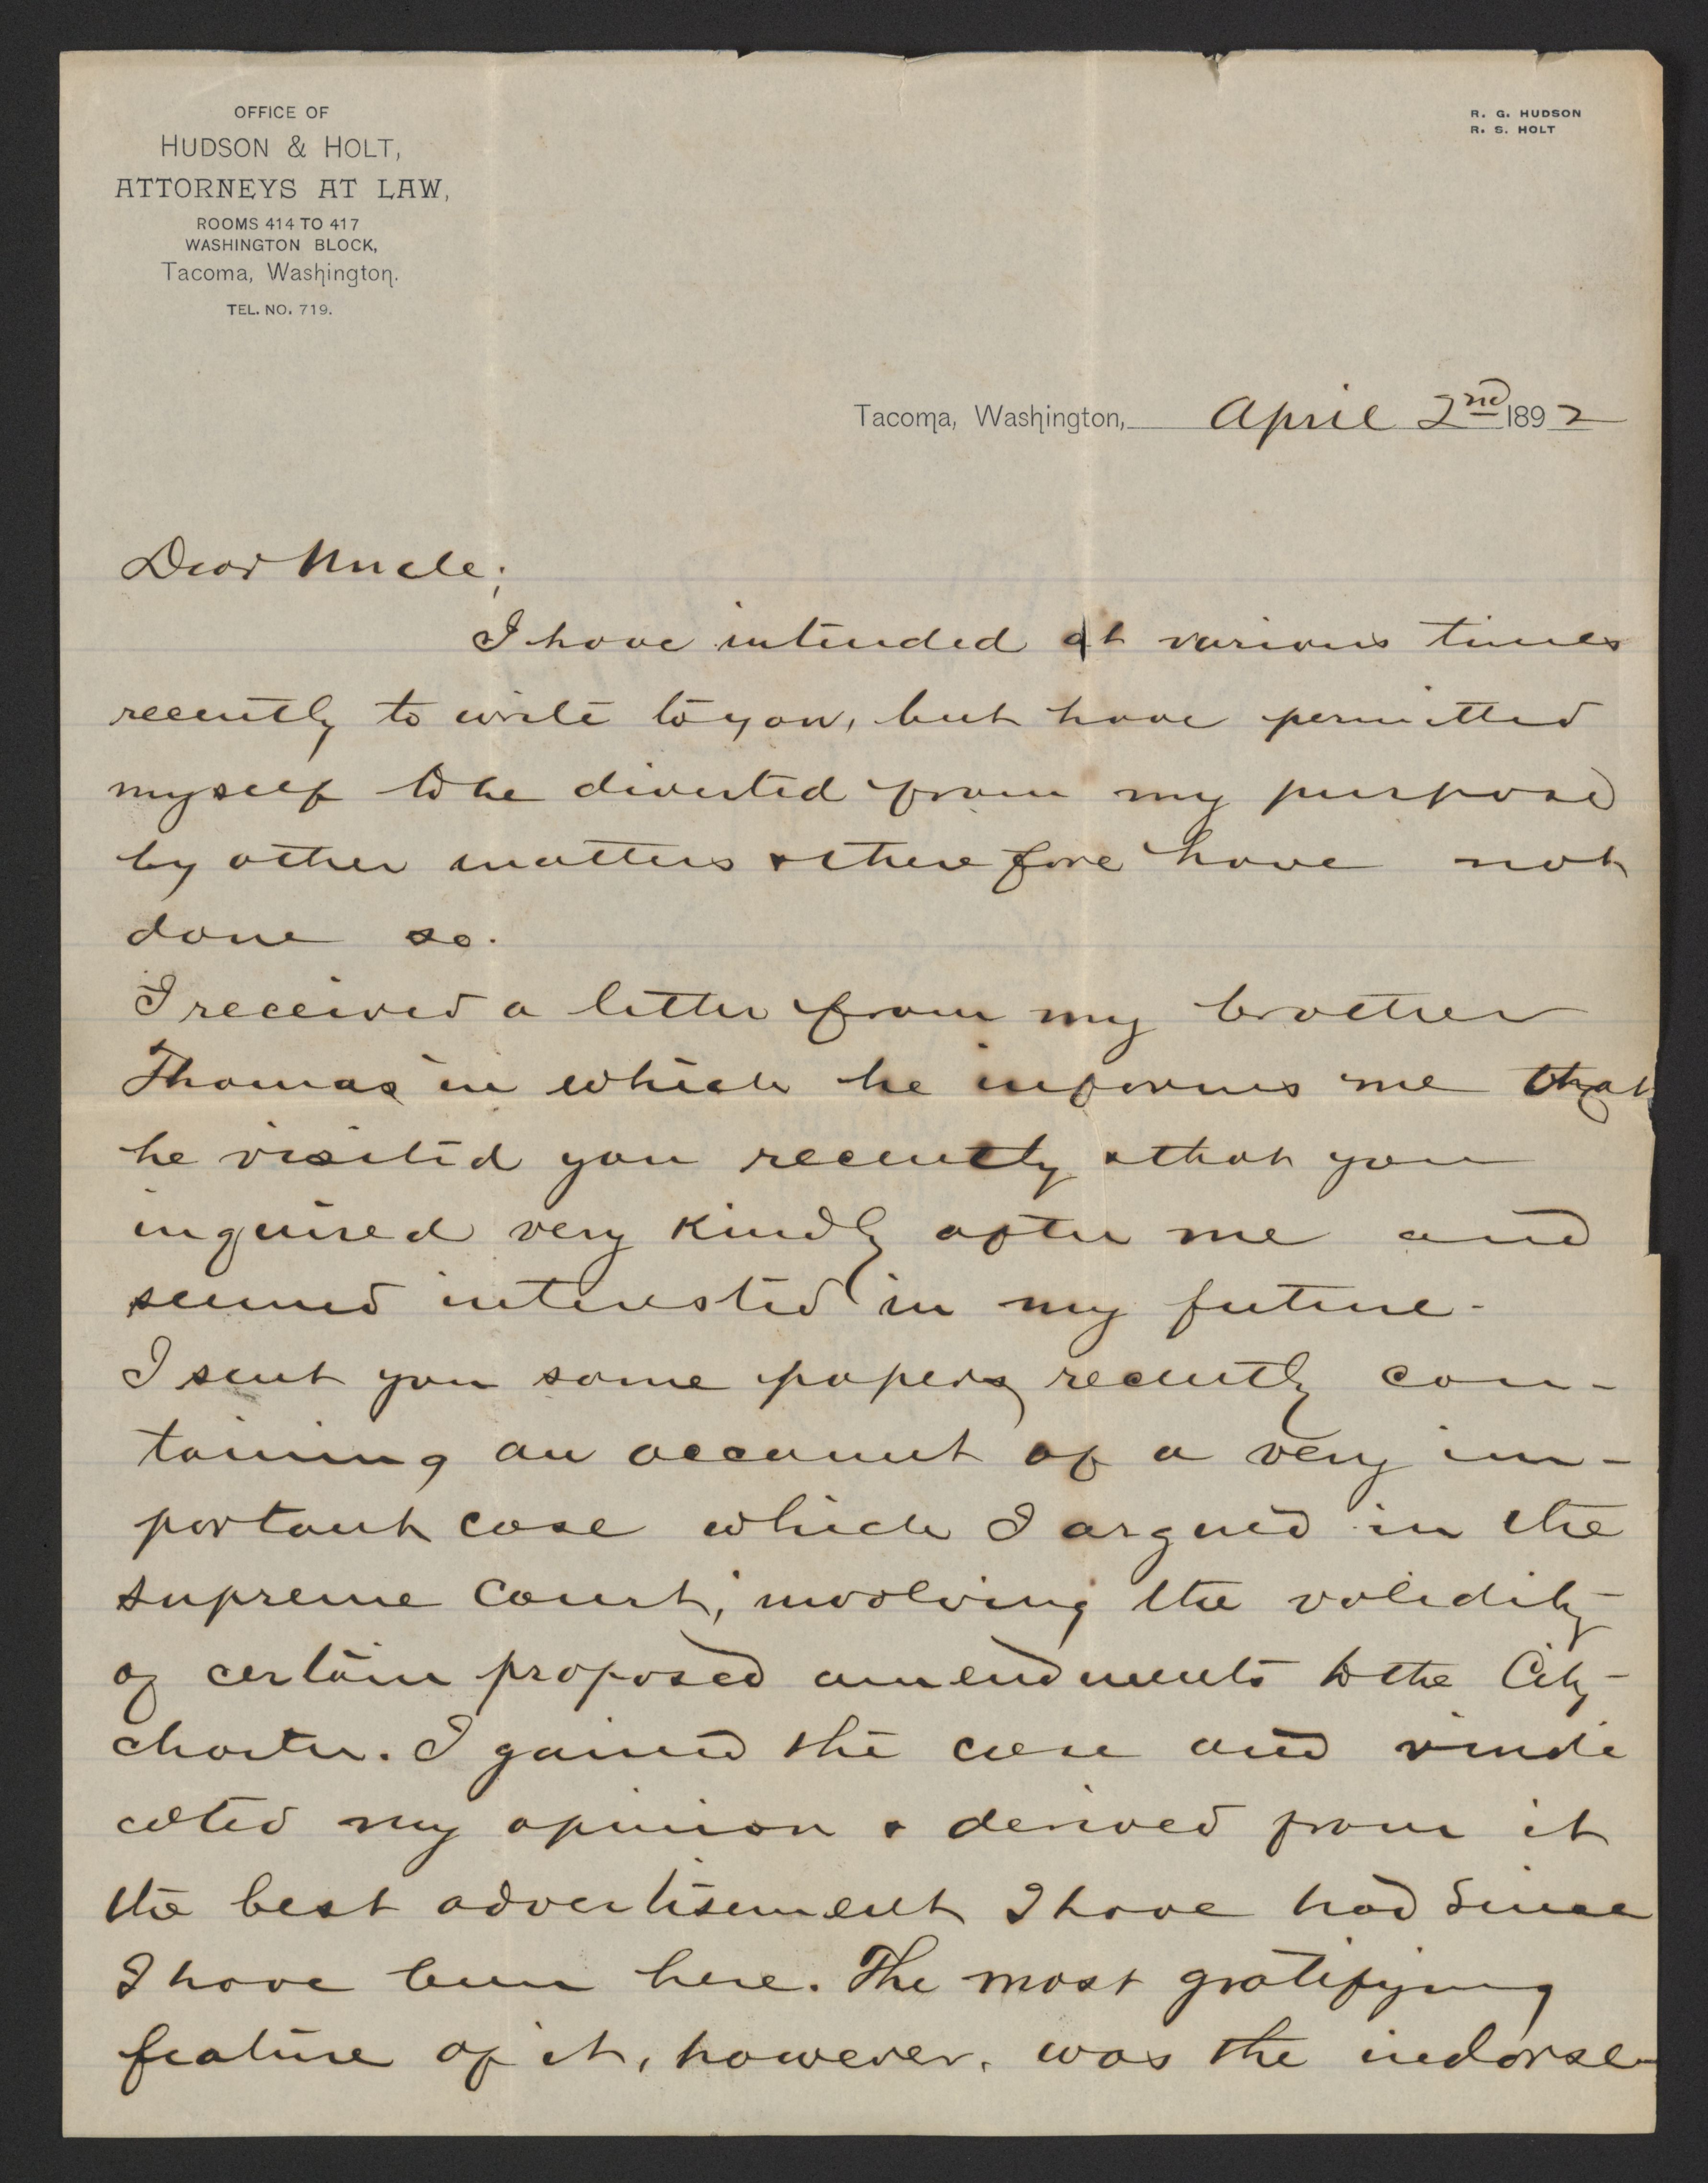 OFFICE OF
HUDSON & HOLT,
ATTORNEYS AT LAW,
ROOMS 414 TO 417
WASHINGTON BLOCK,
Tacoma, Washington.
TEL. NO. 719.
R. G. HUDSON
R. S. HOLT
Tacoma, Washington, April 2nd 1892
Dear Uncle;
I have intended at various times
recently to write to you, but have permitted
myself to be diverted from my purpose
by other matters & therefore have not
done so.
I received a letter from my brother
Thomas in which he informs me that
he visited you recently & that you
inquired very kindly after me and
seemed interested in my future.
I sent you some papers recently con-
taining an account of a very im-
portant case which I argued in the
supreme court, involving the validity
of certain proposed amendments to the City
charter. I gained the case and vindi
cated my opinion & derived from it
the best advertisement I have had since
I have been here. The most gratifying
feature of it, however, was the indorse-